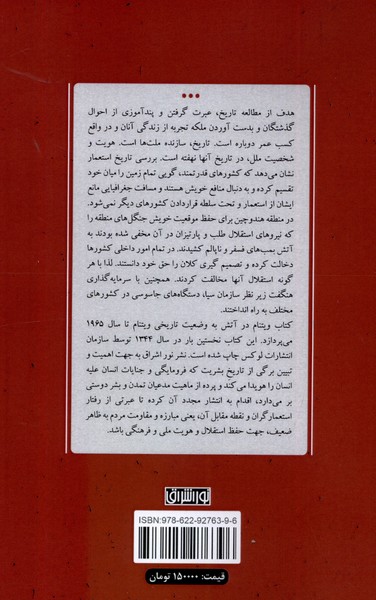 هدف از مطالعه تاریخ، عبرت گرفتن و پندآموزی از احوال
گذشتگان و بدست آوردن ملکه تجربه از زندگی آنان و در واقع
کسب عمر دوباره است. تاریخ، سازنده ملت‌ها است. هویت و
شخصیت ملل، در تاریخ آنها نهفته است. بررسی تاریخ استعمار
نشان می‌دهد که کشورهای قدرتمند، گویی تمام زمین را میان خود
تقسیم کرده و به دنبال منافع خویش هستند و مسافت جغرافیایی مانع
ایشان از استعمار و تحت سلطه قراردادن کشورهای دیگر نمی‌شود.
در منطقه هندوچین برای حفظ موقعیت خویش جنگل‌های منطقه را
که نیروهای استقلال طلب و پارتیزان در آن مخفی شده بودند به
آتش بمب‌های فسفر و ناپالم کشیدند. در تمام امور داخلی کشورها
دخالت کرده و تصمیم گیری کلان را حق خود دانستند. لذا با هر
گونه استقلال آنها مخالفت کردند. همچنین با سرمایه‌گذاری
هنگفت زیر نظر سازمان سیا، دستگاه‌های جاسوسی در کشورهای
مختلف به راه انداختند.
کتاب ویتنام در آتش به وضعیت تاریخی ویتنام تا سال ۱۹۶۵
می‌پردازد. این کتاب نخستین بار در سال ۱۳۴۴ توسط سازمان
انتشارات لوکس چاپ شده است. نشر نور اشراق به جهت اهمیت و
تبیین برگی از تاریخ بشریت که فرومایگی و جنایات انسان علیه
انسان را هویدا می کند و پرده از ماهیت مدعیان تمدن و بشر دوستی
بر می‌دارد، اقدام به انتشار مجدد آن کرده تا عبرتی از رفتار
استعمارگران و نقطه مقابل آن، یعنی مبارزه و مقاومت مردم به ظاهر
ضعیف، جهت حفظ استقلال و هویت ملی و فرهنگی باشد.
نور اشراق
ISBN: 978-622-92763-9-6
قیمت: ۱۵۰۰۰۰ تومان